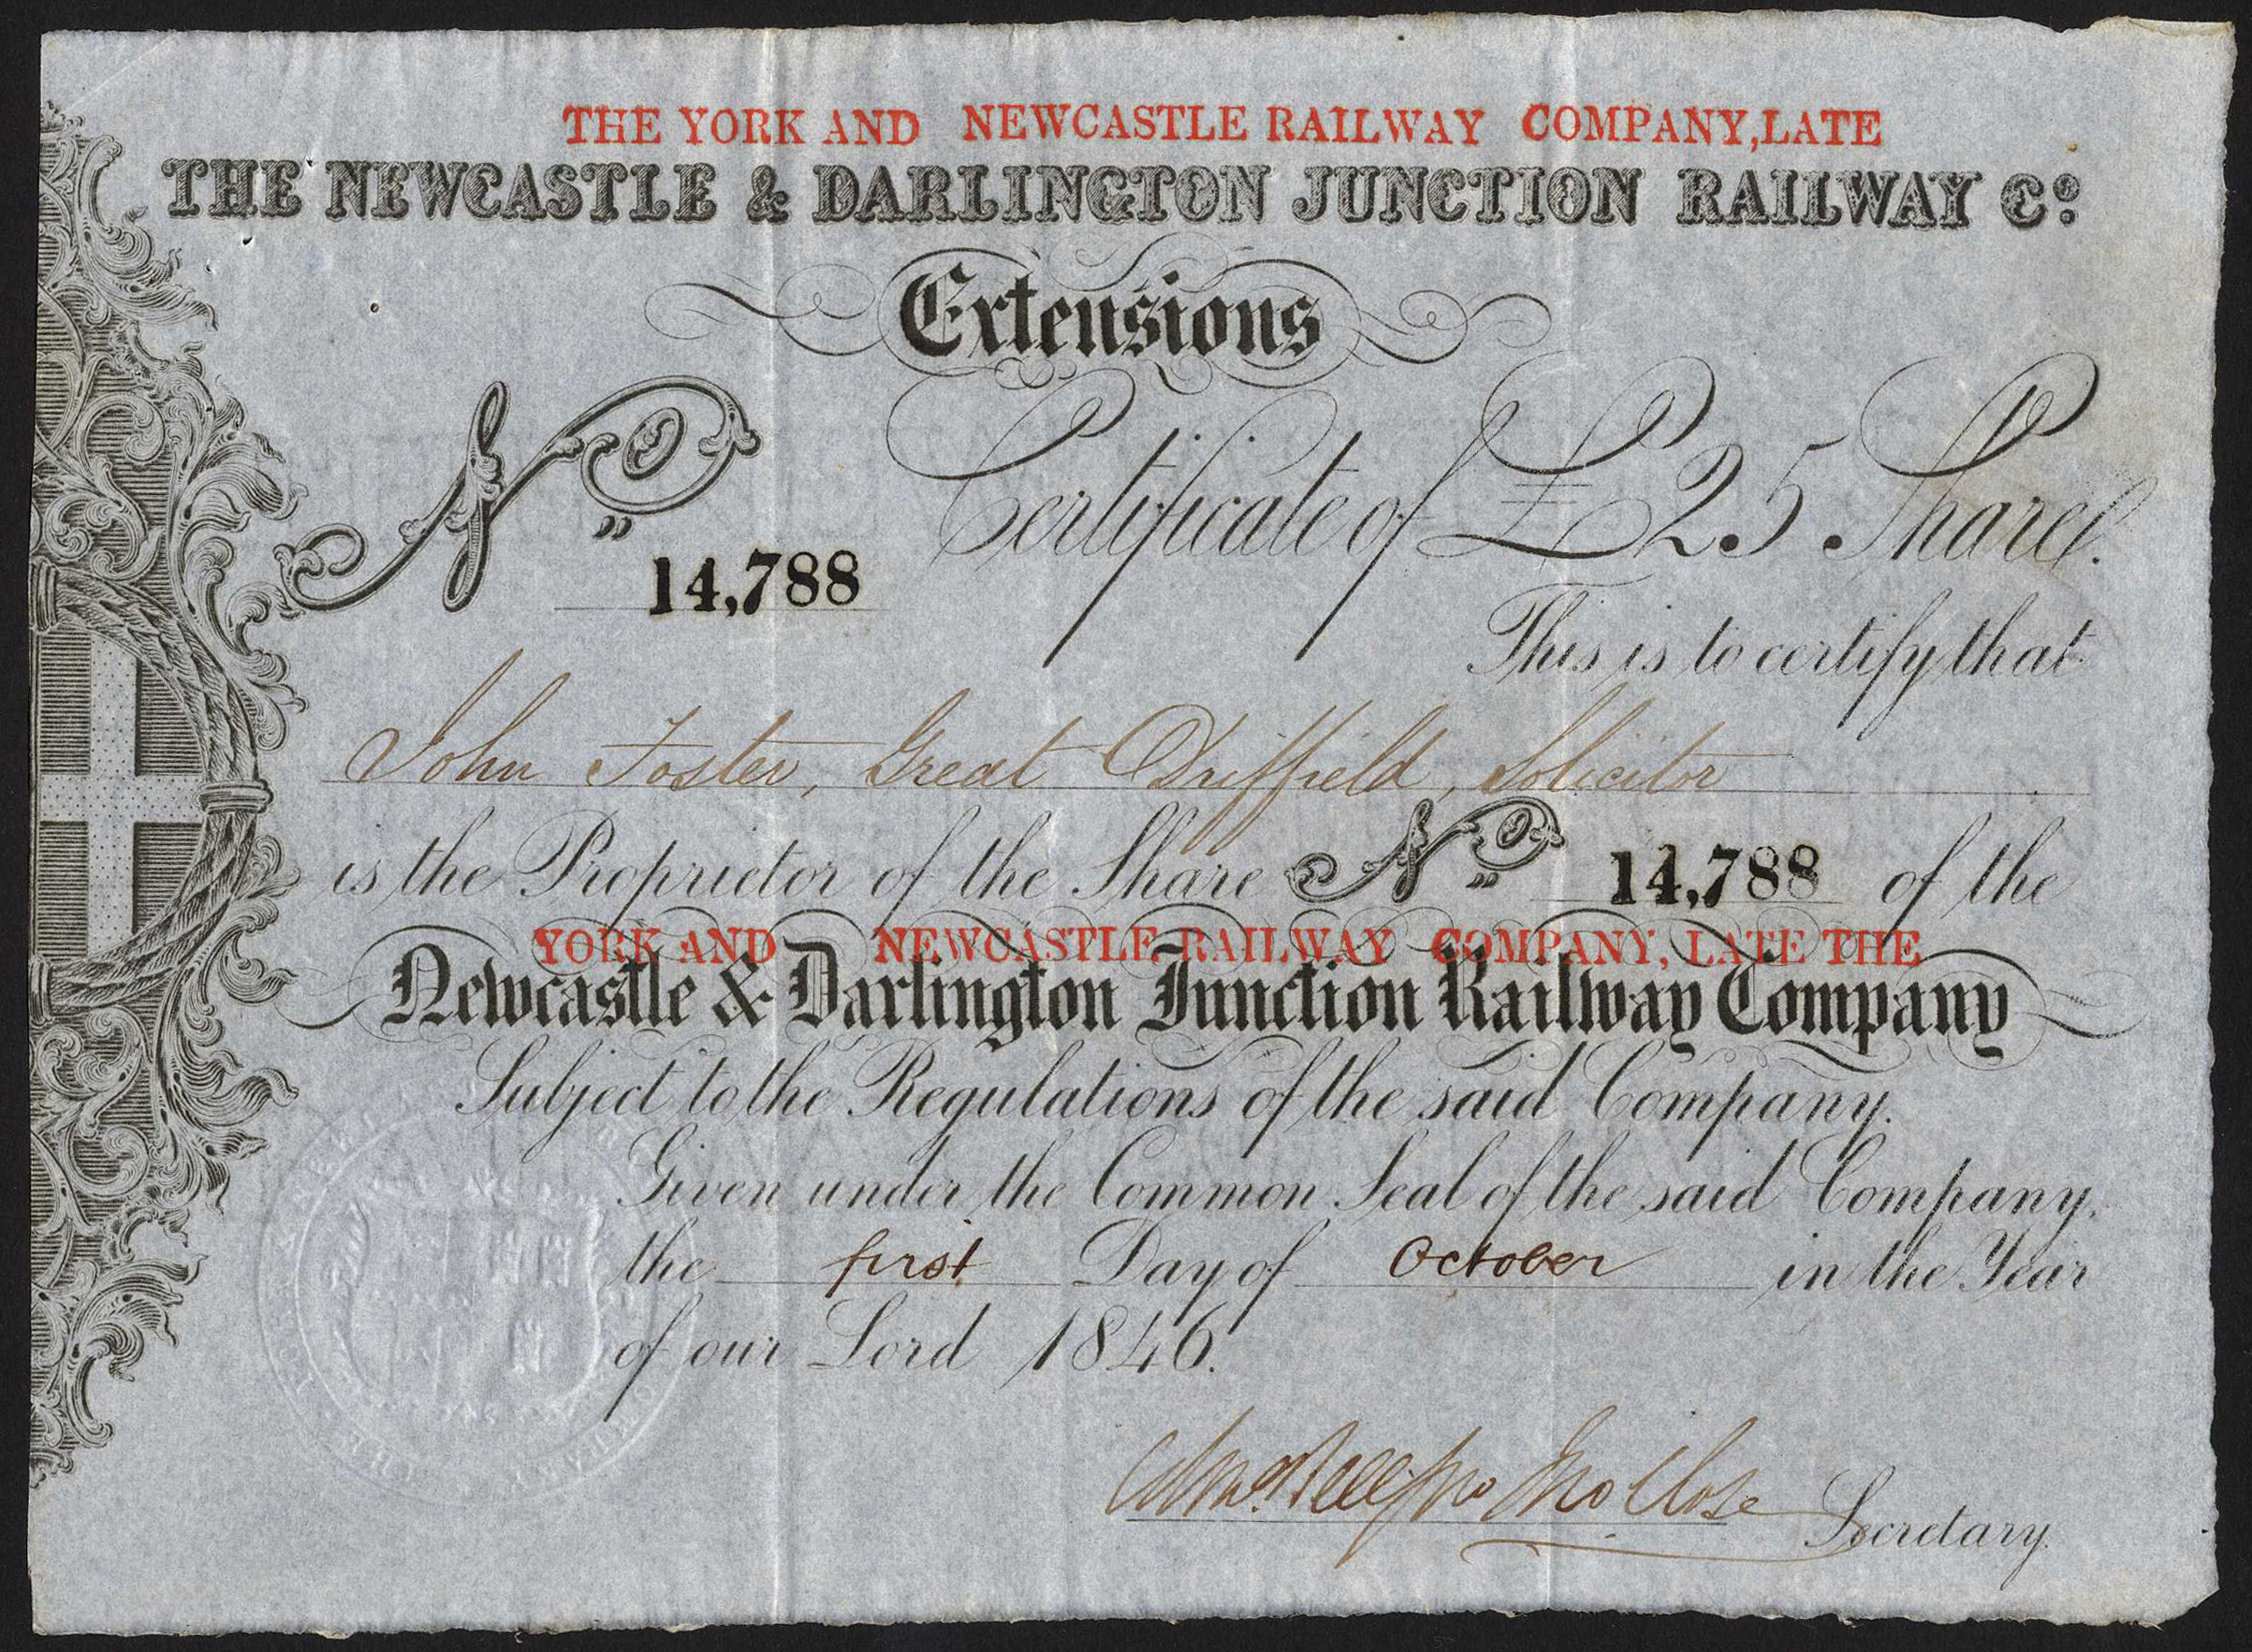 THE YORK AND NEWCASTLE RAILWAY COMPANY, LATE
THE NEWCASTLE & DARLINGTON JUNCTION RAILWAY Co.
Extensions
No. 14,788
Certificate of £25 Shares.
This is to certify that
John Foster, Great Driffield, Solicitor
is the Proprietor of the Share No. 14,788 of the
YORK AND NEWCASTLE RAILWAY COMPANY, LATE THE
Newcastle & Darlington Junction Railway Company
Subject to the Regulations of the said Company.
Given under the Common Seal of the said Company,
the first Day of October in the Year
of our Lord 1846.
Close Secretary.